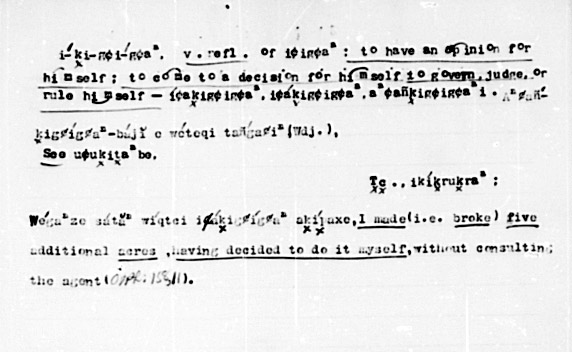 i-ḳi-g¢í-g¢aⁿ, v. refl. of i¢ig¢aⁿ: to have an opinion for
himself; to come to a decision for himself to govern, judge, or
rule himself — i¢aḳig¢ig¢aⁿ, i¢áḳig¢ig¢aⁿ, aⁿ¢añḳig¢ig¢aⁿ i. Aⁿ¢añ-
ḳig¢íg¢aⁿ-bájĭ e wéteqi tañga¢iⁿ (Wdj.),
See u¢uḳiṭaⁿbe.
Ṭc., ikíḳruḳraⁿ;
Wégaⁿze sátăⁿ wíqtci i¢áḳig¢íg¢aⁿ aḳíjaxe, I made (i.e. broke) five
additional acres, having decided to do it myself, without consulting
the agent (